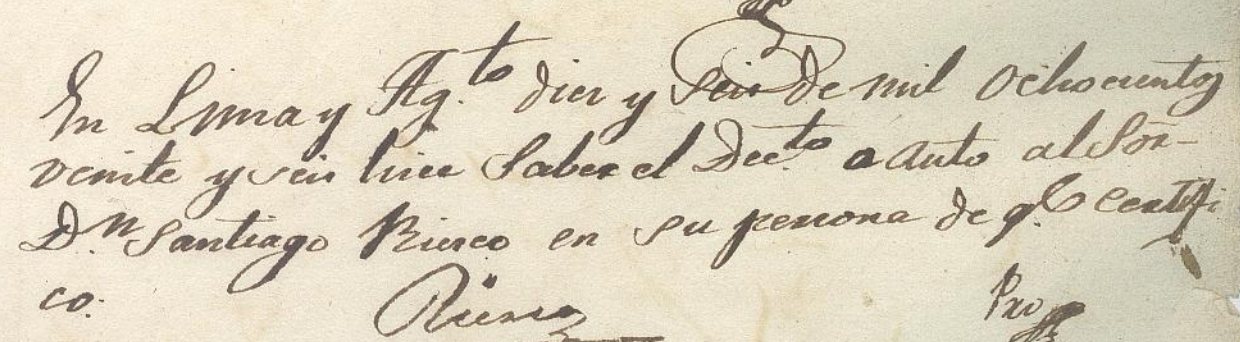 En Lima y Ag.to diez y seis de mil ochocientos
veinte y seis hice saber el Dec.to o auto al Sõr
D.n Santiago Riesco en su persona de q.e certifi
co.
Riesco